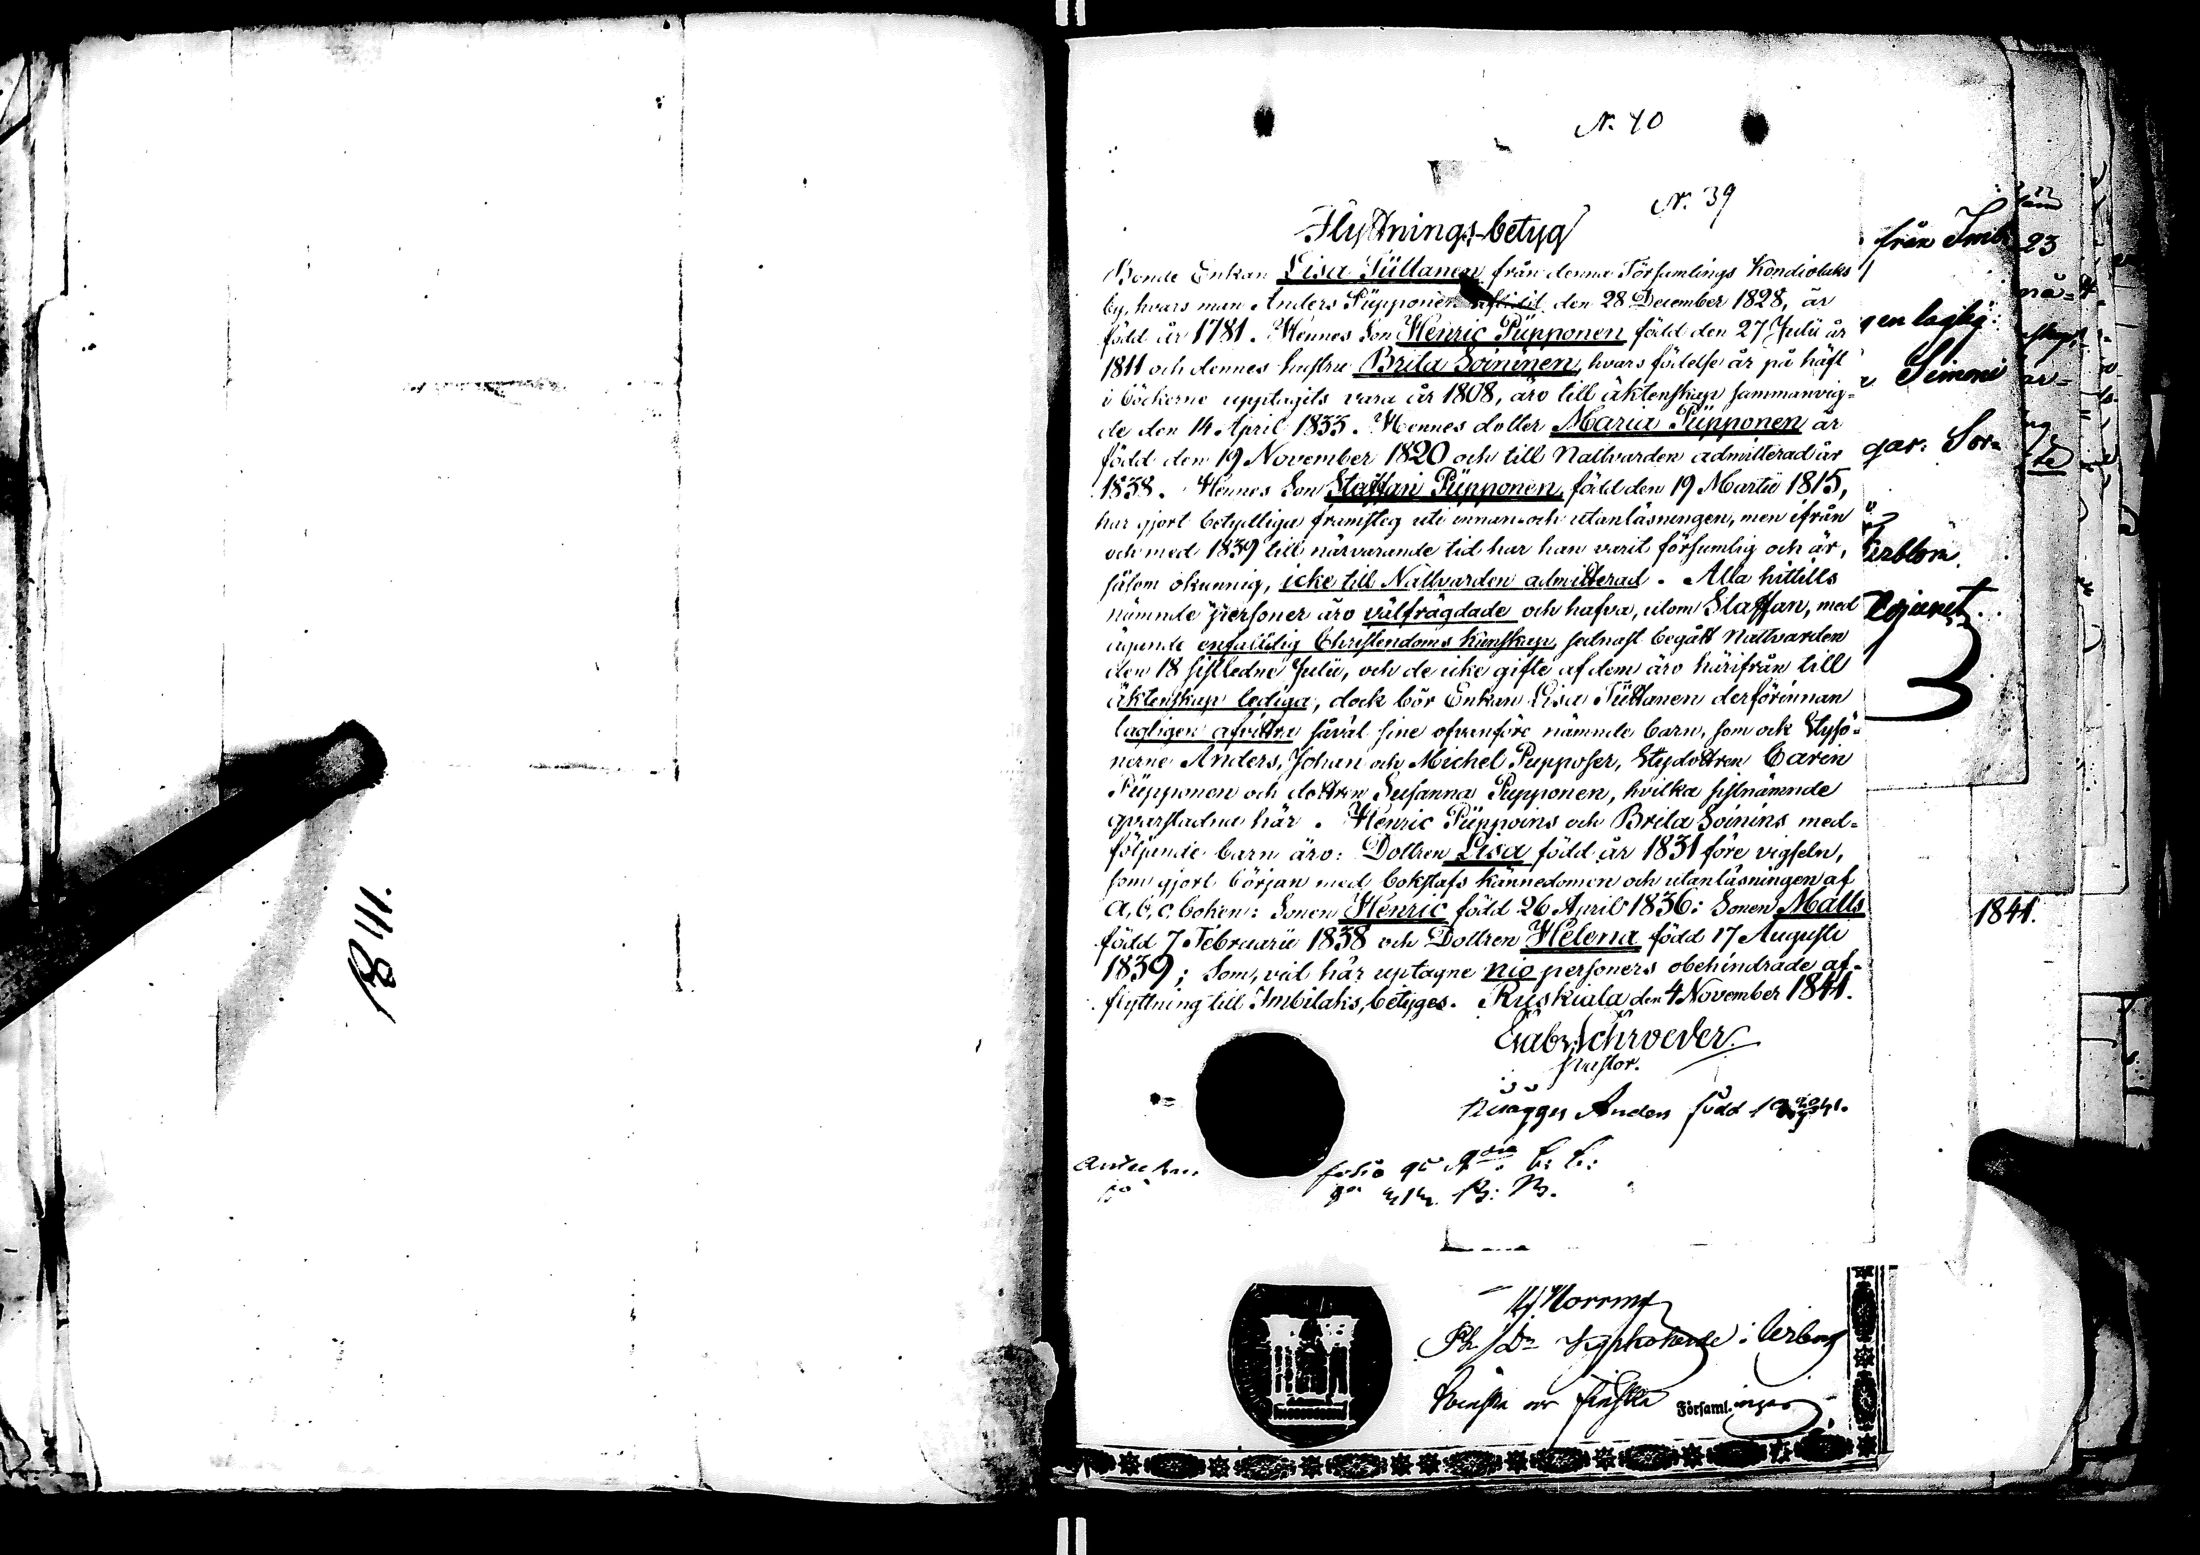 1841.
N. 40
N. 39
Flyttnings-betyg
Bonde Enkan Lisa Tiittanen från denna Församlings Kondiolaks
by, hvars man Anders Püpponen aflidit den 28 December 1828, är
född år 1781. Hennes Son Henric Püpponen född den 27 Julii år
1811 och dennes hustru Brita Soininen, hvars födelse år på häft
i böckerne upptagits vara år 1808, äro till äktenskap sammanvig-
de den 14 April 1833. Hennes dotter Maria Püpponen är
född den 19 November 1820 och till Nattvarden admitterad år
1838. Hennes Son Staffan Püpponen, född den 19 Martii 1815,
har gjort betydliga framsteg uti innan- och utanläsningen, men ifrån
och med 1839 till närvarande tid har han varit försumlig och är,
såsom okunnig, icke till Nattvarden admitterad. Alla hittills
nämnde personer äro välfrägdade och hafva, utom Staffan, med
ägande enfaldig Christendoms kunskap, sednast begått Nattvarden
den 18 sistledne Julii, och de icke gifte af dem äro härifrån till
äktenskap lediga, dock bör Enkan Lisa Tiittanen derförinnan
lagligen afvittra såväl sine ofvanföre nämnde barn, som ock Stysö-
nerne Anders, Johan och Michel Pupposer, Stydottren Carin
Püpponen och dottren Susanna Püpponen, hvilka sistnämnde
qvarstadna här. Henric Püppoins och Brita Soinins med-
följande barn äro: Dottren Lisa född år 1831 före vigseln,
som gjort början med bokstafs kännedomen och utanläsningen af
a, b, c, boken: Sonen Henric född 26 April 1836: Sonen Matts
född 7 Februarii 1838 och Dottren Helena född 17 Augusti
1839; Som, vid här uptagne nio personers obehindrade af-
flyttning till Imbilaks, betyges. Ruskiala den 4 November 1841.
Gabr. Schroeder.
Pastor.
Anders född
folio
från Imb
23
gen laglig
Simoni
qar. Sor-
1841.
Norring
Ph. Dr Kyrkoherde i
Svenska och finska Församl. ingar